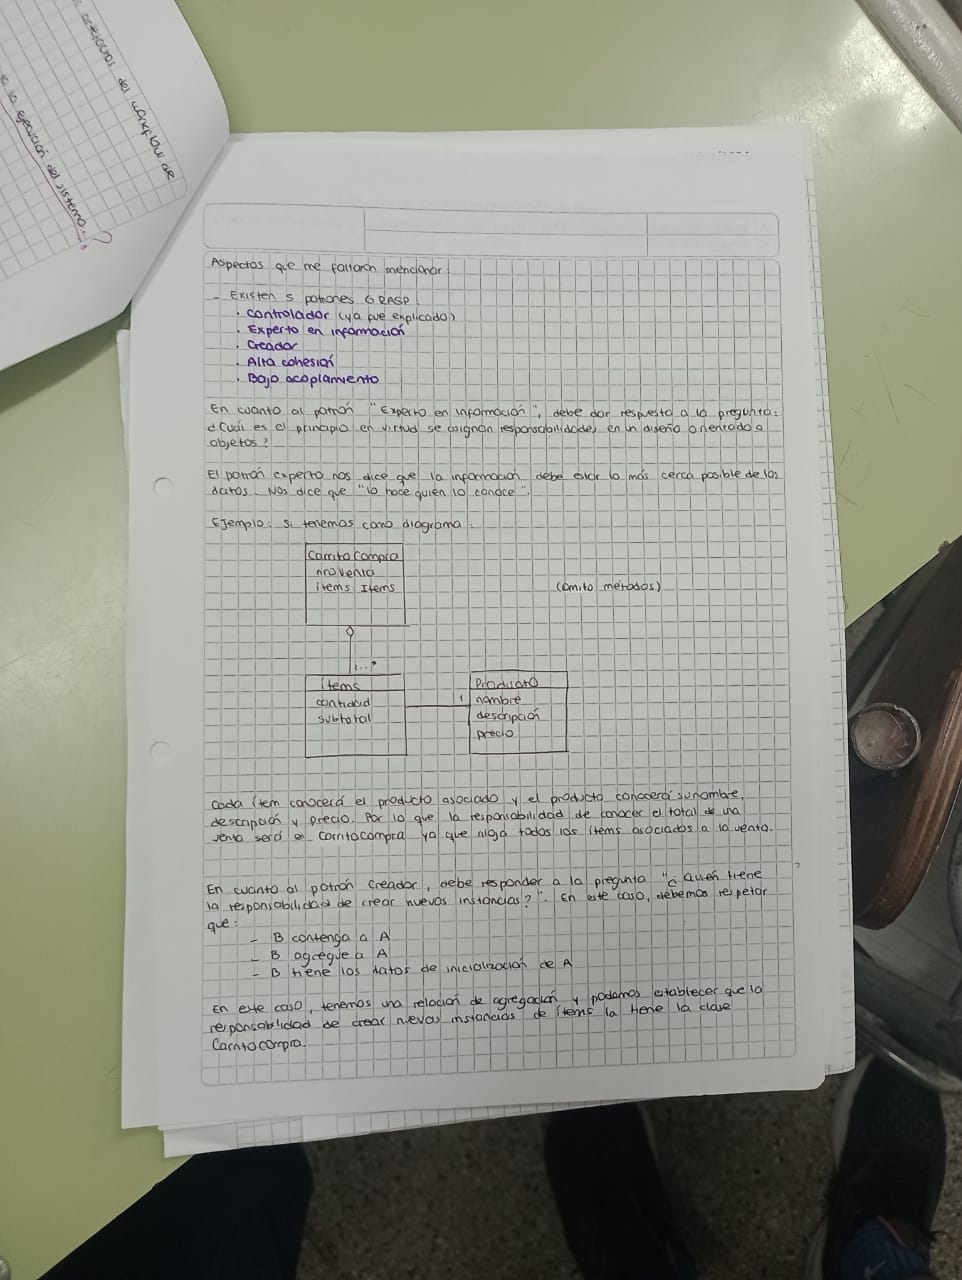 artefactos del workflow de
la ejecución del sistema...?
Aspectos que me faltaron mencionar:
- Existen 5 patrones GRASP:
. Controlador (ya fue explicado)
. Experto en información
. Creador
. Alta cohesión
. Bajo acoplamiento
En cuanto al patrón "Experto en información", debe dar respuesta a la pregunta:
¿Cuál es el principio en virtud se asignan responsabilidades en un diseño orientado a
objetos?
El patrón experto nos dice que la información debe estar lo más cerca posible de los
datos. Nos dice que "lo hace quién lo conoce".
Ejemplo: si tenemos como diagrama:
CarritoCompra
nroVenta
items: Items
(omito métodos)
1..*
Items
cantidad
subtotal
1
Producto
nombre
descripción
precio
Cada ítem conocerá el producto asociado y el producto conocerá su nombre,
descripción y precio. Por lo que la responsabilidad de conocer el total de una
venta será el carritocompra ya que todos los ítems asociados a la venta.
En cuanto al patrón Creador, debe responder a la pregunta "¿Quién tiene
la responsabilidad de crear nuevas instancias?". En este caso, debemos respetar
que:
- B contenga a A
- B agregue a A
- B tiene los datos de inicialización de A
En este caso, tenemos una relación de agregación y podamos establecer que la
responsabilidad de crear nuevas instancias de ítems la tiene la clase
Carritocompra.